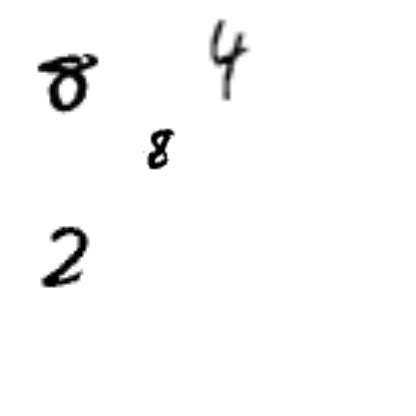 8 4
8
2